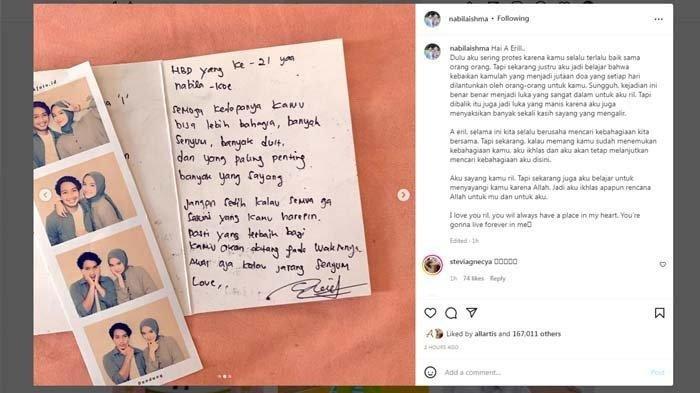 HBD yang ke-21 yaa
nabila-koe
Semoga kedepannya kamu
bisa lebih bahagia, banyak
senyum, banyak duit,
dan yang paling penting
banyak yang sayang
jangan sedih kalau semua ga
sesuai yang kamu harepin.
pasti yang terbaik bagi
kamu akan datang pada waktunya
awas aja kalau jarang senyum
Love,,
Bandung
nabilaishma • Following
nabilaishma Hai A Erill..
Dulu aku sering protes karena kamu selalu terlalu baik sama
orang orang. Tapi sekarang justru aku jadi belajar bahwa
kebaikan kamulah yang menjadi jutaan doa yang setiap hari
dilantunkan oleh orang-orang untuk kamu. Sungguh, kejadian ini
benar benar menjadi luka yang sangat dalam untuk aku ril. Tapi
dibalik itu juga jadi luka yang manis karena aku juga
menyaksikan banyak sekali kasih sayang yang mengalir.
A eril, selama ini kita selalu berusaha mencari kebahagiaan kita
bersama. Tapi sekarang, kalau memang kamu sudah menemukan
kebahagiaan kamu, aku ikhlas dan aku akan tetap melanjutkan
mencari kebahagiaan aku disini.
Aku sayang kamu ril. Tapi sekarang juga aku belajar untuk
menyayangi kamu karena Allah. Jadi aku ikhlas apapun rencana
Allah untuk mu dan untuk aku.
I love you ril, you wil always have a place in my heart. You're
gonna live forever in me
Edited · 1h
steviagnecya
1h 74 likes Reply
Liked by allartis and 167,011 others
2 HOURS AGO
Add a comment...
Post